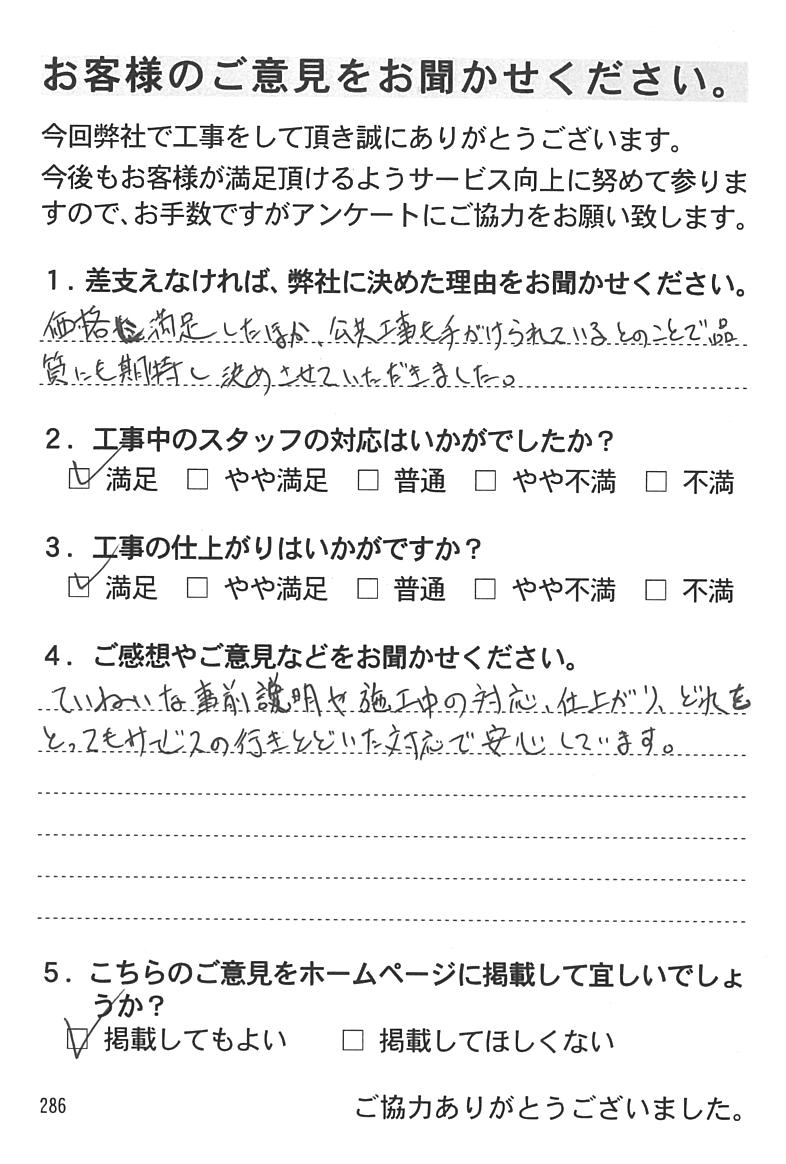 お客様のご意見をお聞かせください。
今回弊社で工事をして頂き誠にありがとうございます。
今後もお客様が満足頂けるようサービス向上に努めて参りま
すので、お手数ですがアンケートにご協力をお願い致します。
1. 差支えなければ、弊社に決めた理由をお聞かせください。
価格に満足したほか、公共工事も手がけられているとのことで品
質にも期待し決めさせていただきました。
2. 工事中のスタッフの対応はいかがでしたか？
☑ 満足 □ やや満足 □ 普通 □ やや不満 □ 不満
3. 工事の仕上がりはいかがですか？
☑ 満足 □ やや満足 □ 普通 □ やや不満 □ 不満
4. ご感想やご意見などをお聞かせください。
ていねいな事前説明や施工中の対応、仕上がり、どれも
とってもサービスの行きとどいた対応で安心しています。
5. こちらのご意見をホームページに掲載して宜しいでしょ
うか？
☑ 掲載してもよい □ 掲載してほしくない
286 ご協力ありがとうございました。